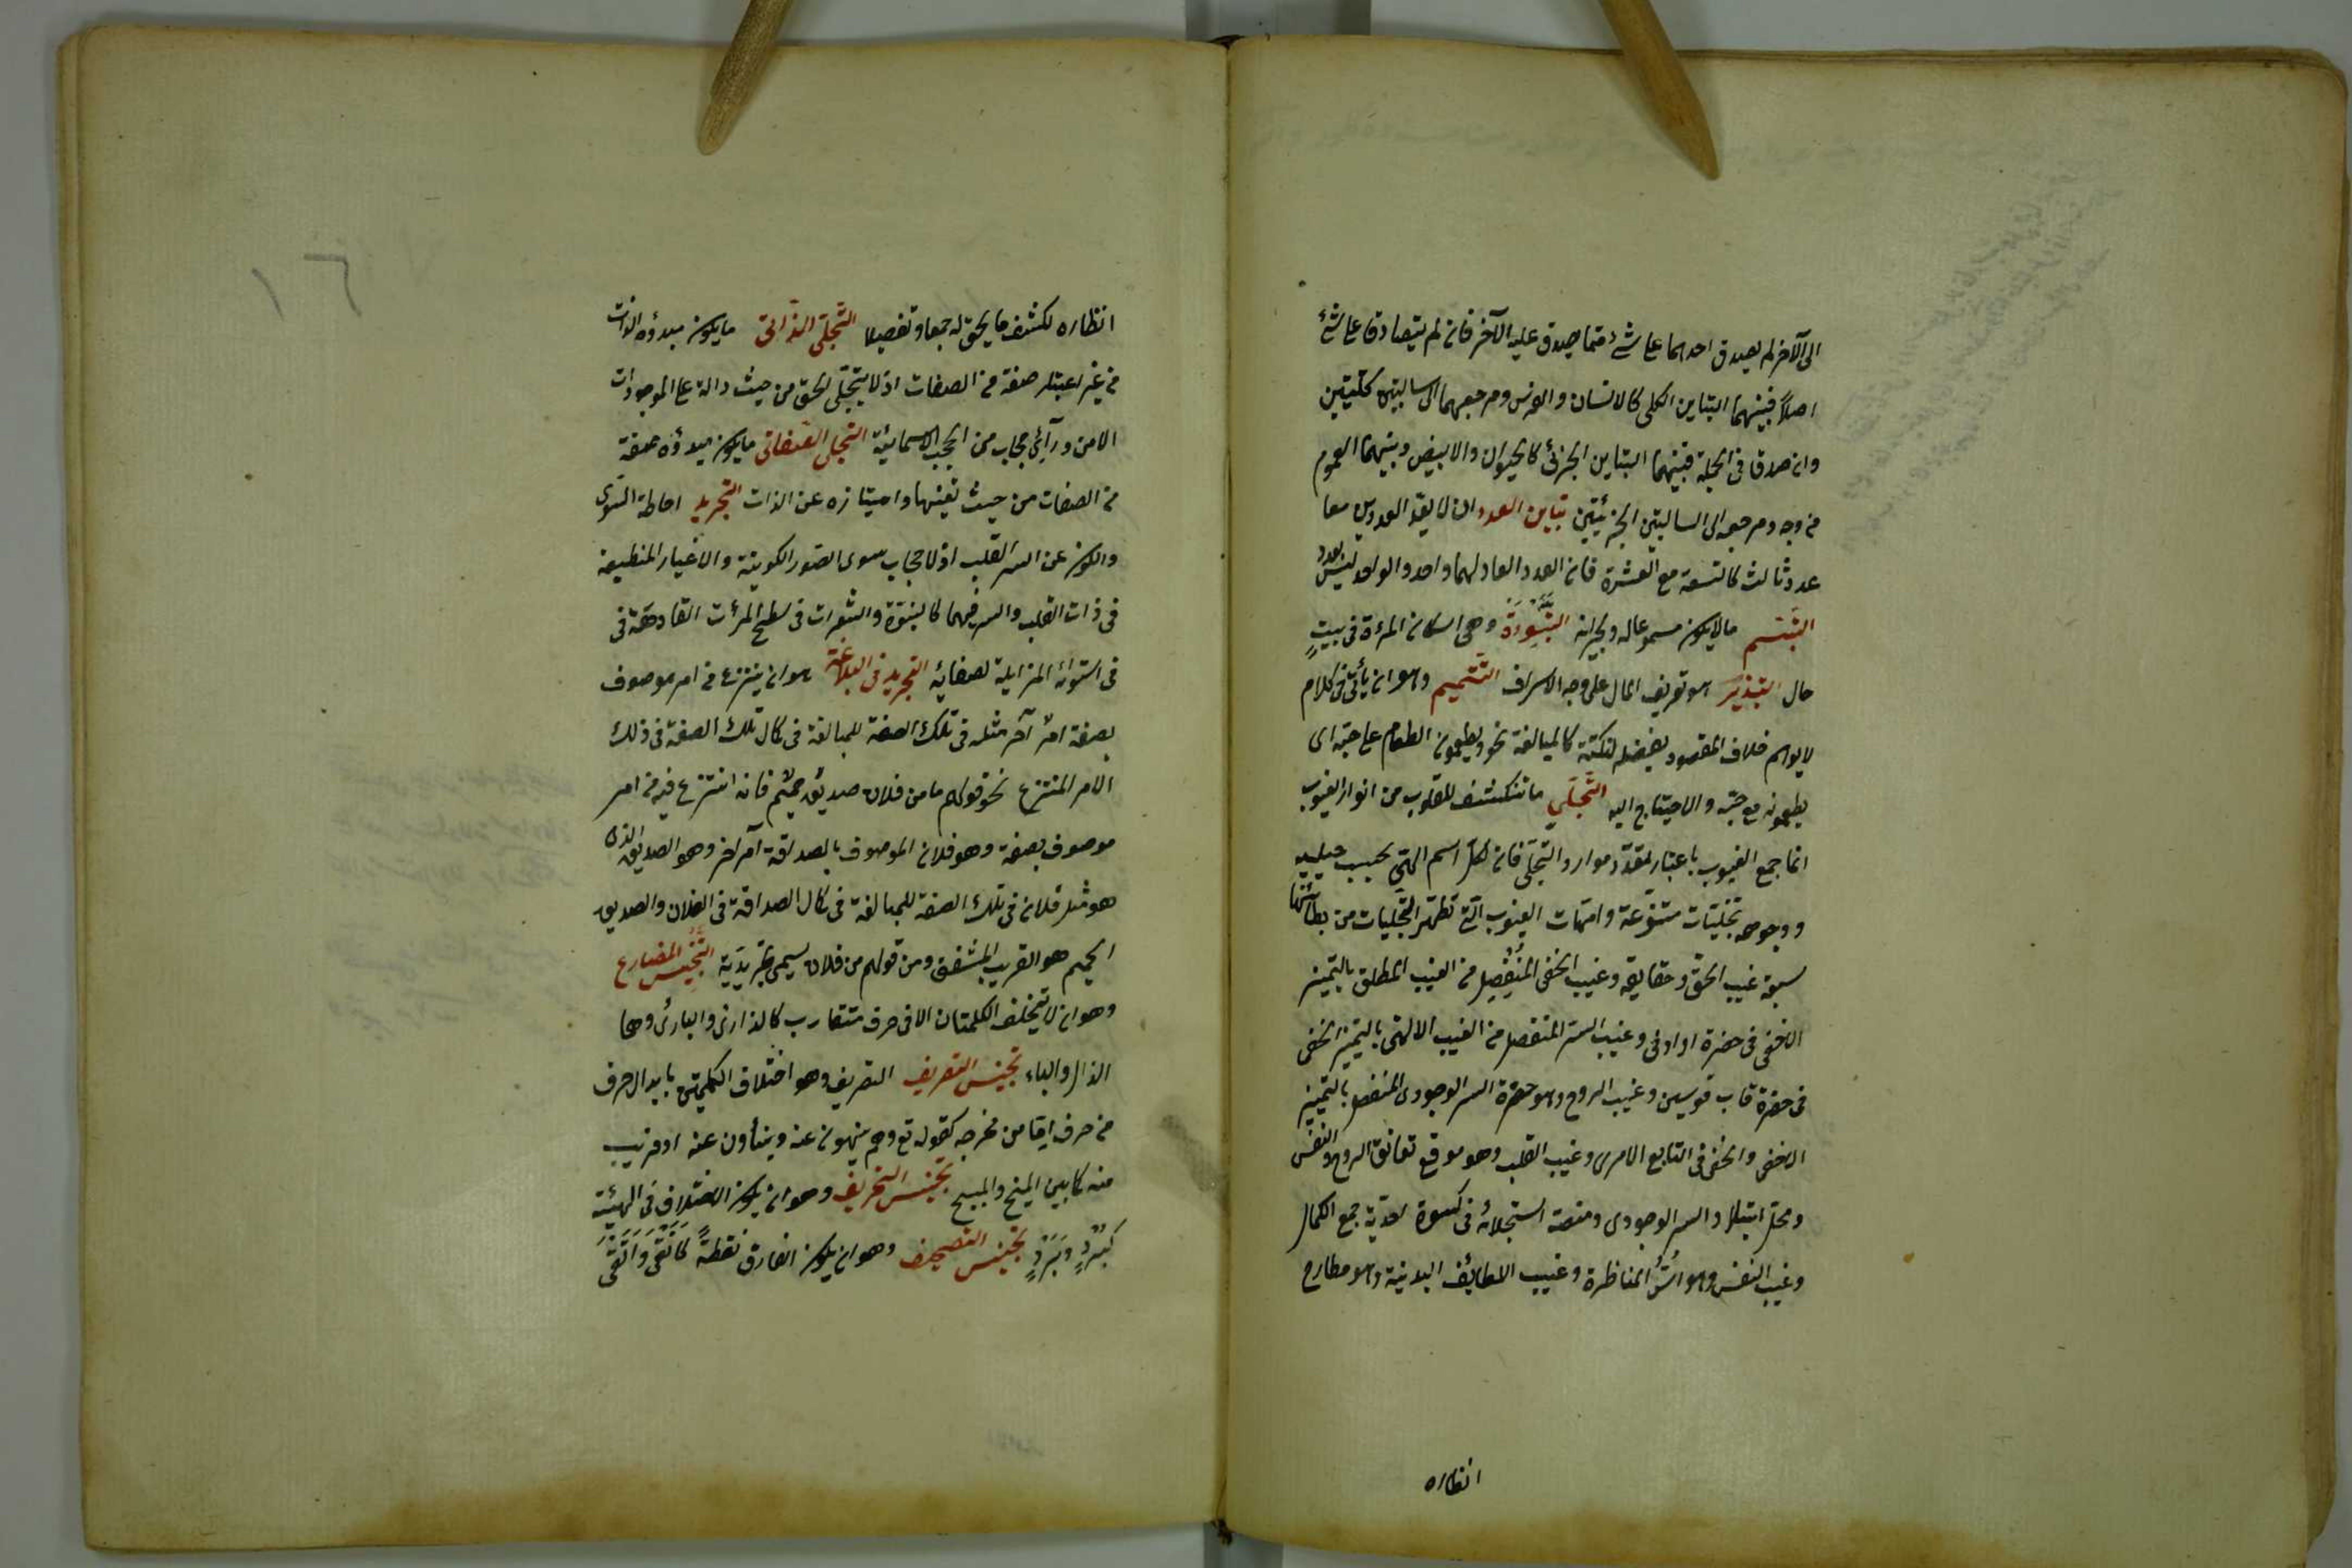 الى الآخر لم يصدق احدهما على شئ مما يصدق عليه الآخر فان لم يتصادقا على شئ
اصلاً فبينهما التباين الكلى كالانسان والفرس ومرجعهما الى سالبتين كليتين
وان صدقا فى الجملة فبينهما التباين الجزئى كالحيوان والابيض وبينهما العموم
من وجه ومرجعه الى السالبتين الجزئيتين تباين العدد ان لا يعدّ العددين معا
عدد ثالث كالتسعة مع العشرة فان العدد العاد لهما واحد والواحد ليس بعدد
التبسّم مالايكون مسموعا له ولجيرانه التبوئة وهى اسكان المرءة فى بيتٍ
خال التبذير هو تفريق المال على وجه الاسراف التتميم وهو ان يأتى فى كلام
لا يوهم خلاف المقصود بفضلة لنكتة كالمبالغة نحو ويطعمون الطعام على حبّه اى
يطعمونه مع حبّه والاحتياج اليه التجلّي ما تنكشف للقلوب من انوار الغيوب
انما جمع الغيوب باعتبار تعدّد موارد التجلّى فان لكل اسم الٓهىّ بحسب حيطته
ووجوهه تجليّات متنوّعة وامّهات الغيوب الّتى تظهر التجّليات من بطائنها
سبعة غيب الحقّ وحقايقه وغيب الخفى المُنْفَصِل من الغيب المطلق بالتميز
الاخفى فى حضرة او ادنى وغيب السّر المنفصل من الغيب الالٓهى بالتميّز الخفى
فى حضرة قاب قوسين وغيب الروح وهو حضرة السر الوجودى المنفصل بالتميّز
الاخفى والخفى فى التابع الامرى وغيب القلب وهو موقع تعانق الروح والنفس
ومحل استيلاد السر الوجودى ومنصة استجلائه فى كسوة احدية جمع الكمال
وغيب النفس وهو انسُ المناظرة وغيب اللطائف البدنية وهو مطارح
انظاره
١٦
انظاره لكشف ما يحق له جمعا وتفصيلا التجلّى الذاتى مايكون مبدؤه الذات
من غير اعتبار صفة من الصفات اذ لا يتجلّى الحق من حيث ذاته على الموجودات
الا من ورآئ حجاب من الحجب الاسمائية التجلى الصّفاتى مايكون مبدؤه صفة
من الصفات من حيث تعينها وامتيازه عن الذات التجريد اماطة السّوى
والكون عن السر القلب اذ لا حجاب سوى الصّور الكونية والاغيار المنطبعة
فى ذات القلب والسر فيهما كالنتوّ والشعرات فى سطح المرءات القادحة فى
فى استوائه المزايلة لصفايه التجريد فى البلاغة هو ان ينتزع من امر موصوف
بصفة امرٌ آخر مثله فى تلك الصفة للمبالغة فى كمال تلك الصفة فى ذلك
الامر المنتزع نحو قولهم مامن فلان صديق حميم فانه انتزع فيه من امر
موصوف بصفة وهو فلان الموصوف بالصداقة آمر اخر وهو الصديق الذى
هو مثل فلان فى تلك الصفة للمبالغة فى كمال الصداقة فى الفلان والصديق
الحميم هو القريب المشفق ومن قولهم من فلان يسمى تجريديّة التجنيس المضارع
وهو ان لا يختلف الكلمتان الا فى حرف متقارب كالذارى والبارئ وهما
الذال والباء تجنيس التصريف التصريف وهو اختلاف الكلمتين بابدال حرف
من حرف امّا من مخرجه كقوله تع وهم ينهون عنه وينأون عنه او قريب
منه كما بين المنيح والمبيح تجنيس التحريف وهو ان يكون الاختلاف فى الهيئة
كبُرْدٍ وبَرْدٍ تجنيس التصحيف وهو ان يكون الفارق نقطةً كأنْقَى وَاَتْقَى